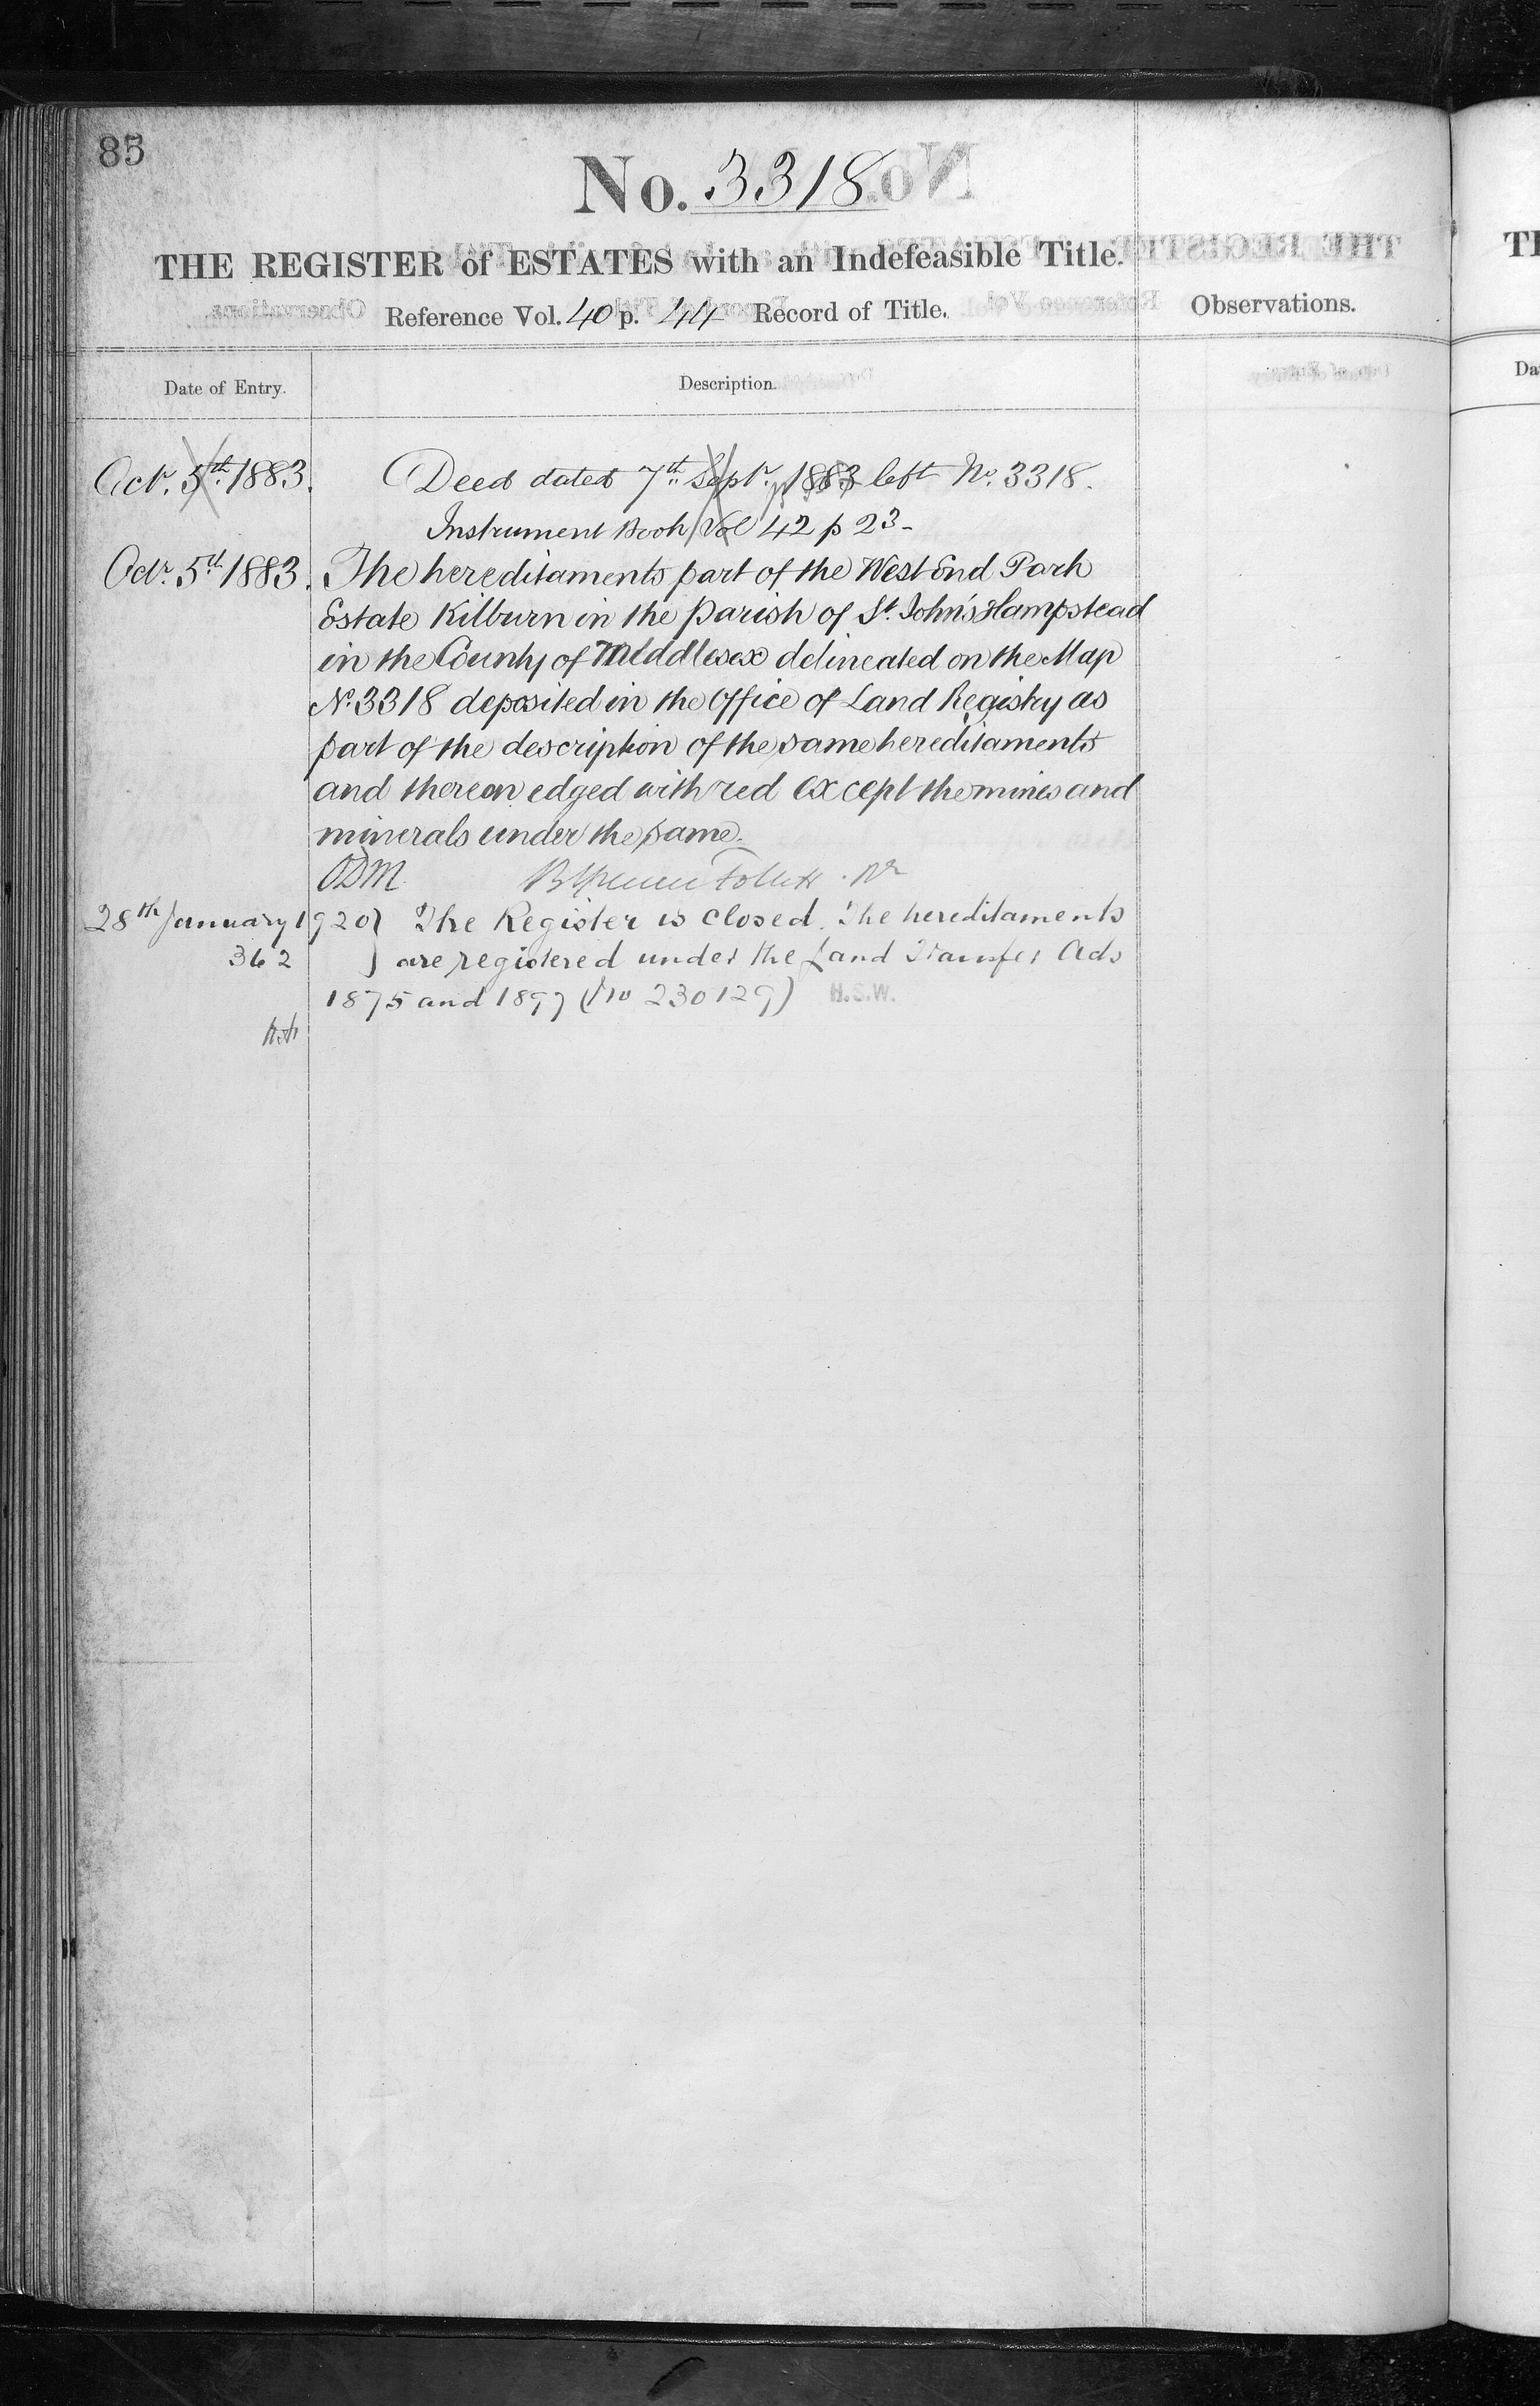 85
No. 3318
THE REGISTER of ESTATES with an Indefeasible Title.
Reference Vol. 40 p. 44 Record of Title.
Observations.
Date of Entry.
Description.
Octr. 5th. 1883. Deed dated 7th Sept. 1883 left No. 3318.
Instrument Book Vol 42 p 23-
Octr. 5th 1883. The hereditaments part of the West End Park
Estate Kilburn in the Parish of St. John's Hampstead
in the County of Middlesex delineated on the Map
No. 3318 deposited in the Office of Land Registry as
part of the description of the same hereditaments
and thereon edged with red except the mines and
minerals under the same.
ODM
28th January 1920 } The Register is closed. The hereditaments
362 } are registered under the Land Transfer Acts
1875 and 1897 (No 230129) H.S.W.
TI
Da